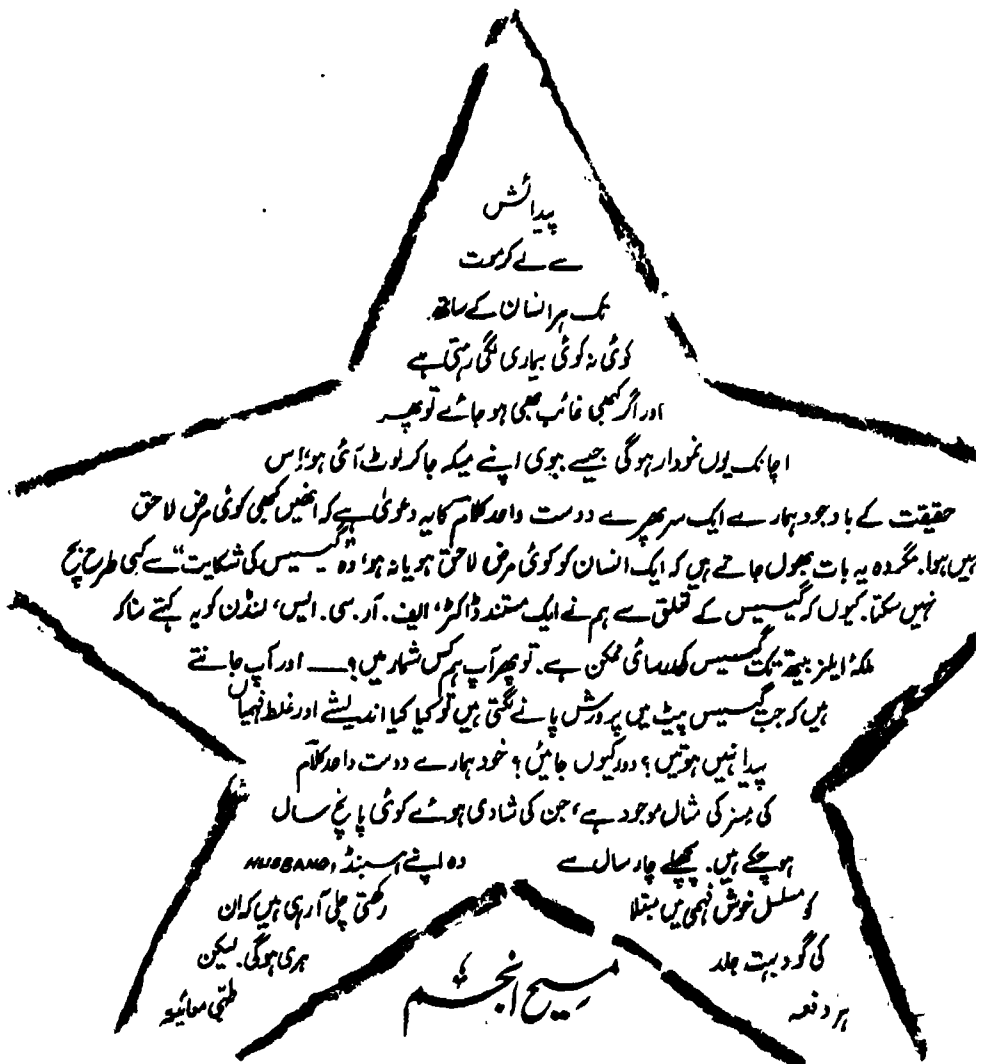 پیدائش
سے لے کر موت
تک ہر انسان کے ساتھ
کوئی نہ کوئی بیماری لگی رہتی ہے
اور اگر کبھی غائب بھی ہو جائے تو پھر
اچانک یوں نمودار ہوگی جیسے بیوی اپنے میکہ جا کر لوٹ آئی ہو! اِس
حقیقت کے باوجود ہمارے ایک سر پھرے دوست واحد کلام کا یہ دعویٰ ہے کہ انھیں کبھی کوئی مرض لاحق
نہیں ہوا. مگر وہ یہ بات بھول جاتے ہیں کہ ایک انسان کو کوئی مرض لاحق ہو یا نہ ہو، وہ "گیسیس کی شکایت" سے کسی طرح بچ
نہیں سکتا. کیوں کہ گیسیس کے تعلق سے ہم نے ایک مستند ڈاکٹر، الیف. آر. سی. ایس، لندن کو یہ کہتے سنا کہ
ملکۂ ایلز بیتھ تک گیسیس کی رسائی ممکن ہے. تو پھر آپ ہم کس شمار میں؟ — اور آپ جانتے
ہیں کہ جب گیسیس پیٹ میں پرورش پانے لگتی ہیں تو کیا کیا اندیشے اور غلط فہمیاں
پیدا نہیں ہوتیں؟ دور کیوں جائیں؟ خود ہمارے دوست واحد کلام
کی مسز کی مثال موجود ہے، جن کی شادی ہوئے کوئی پانچ سال
ہو چکے ہیں. پچھلے چار سال سے وہ اپنے ہسبنڈ، HUSBAND
کو مسلسل خوش فہمی میں مبتلا رکھتی چلی آ رہی ہیں کہ ان
کی گود بہت جلد ہری ہوگی. لیکن
ہر دفعہ طبّی معائنہ
مسیح انجم